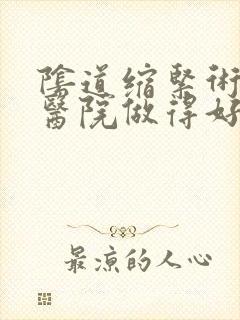 陰道缩緊術
醫院做得好
最凉的人心